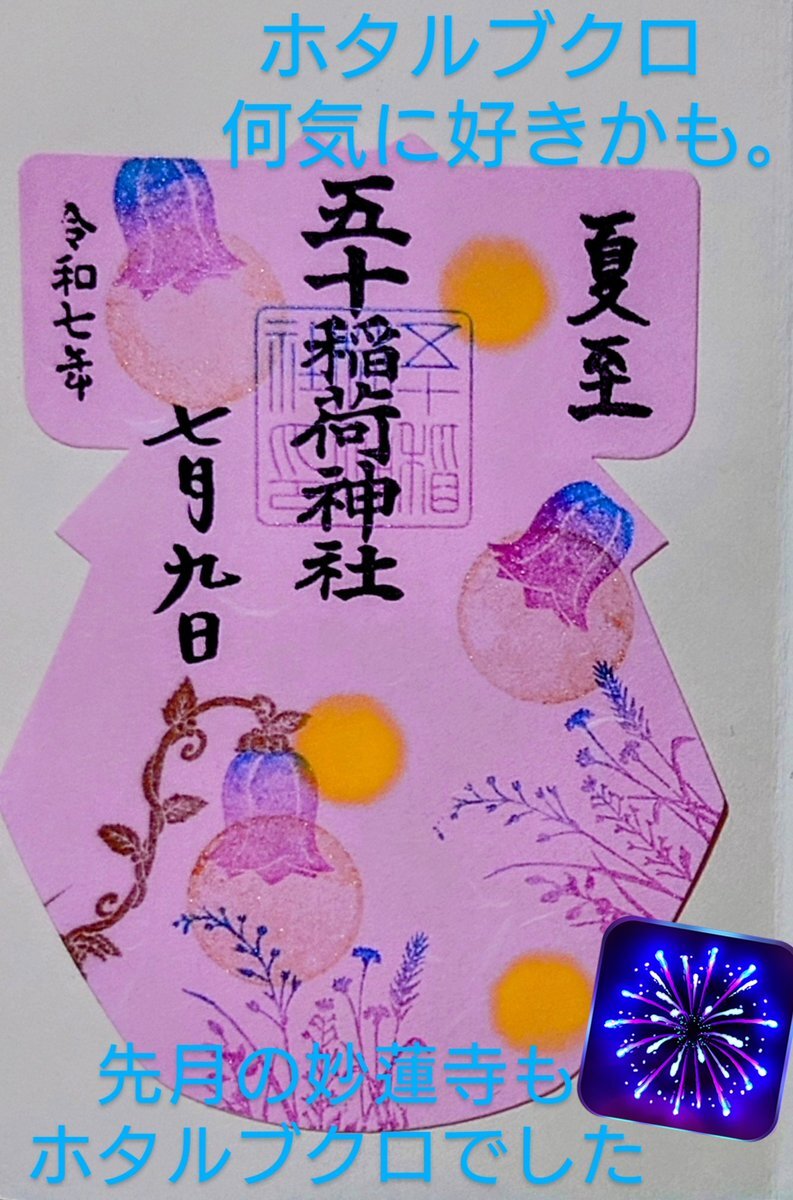 ホタルブクロ
何気に好きかも。
夏至
五十稲荷神社
令和七年
七月九日
先月の妙蓮寺も
ホタルブクロでした